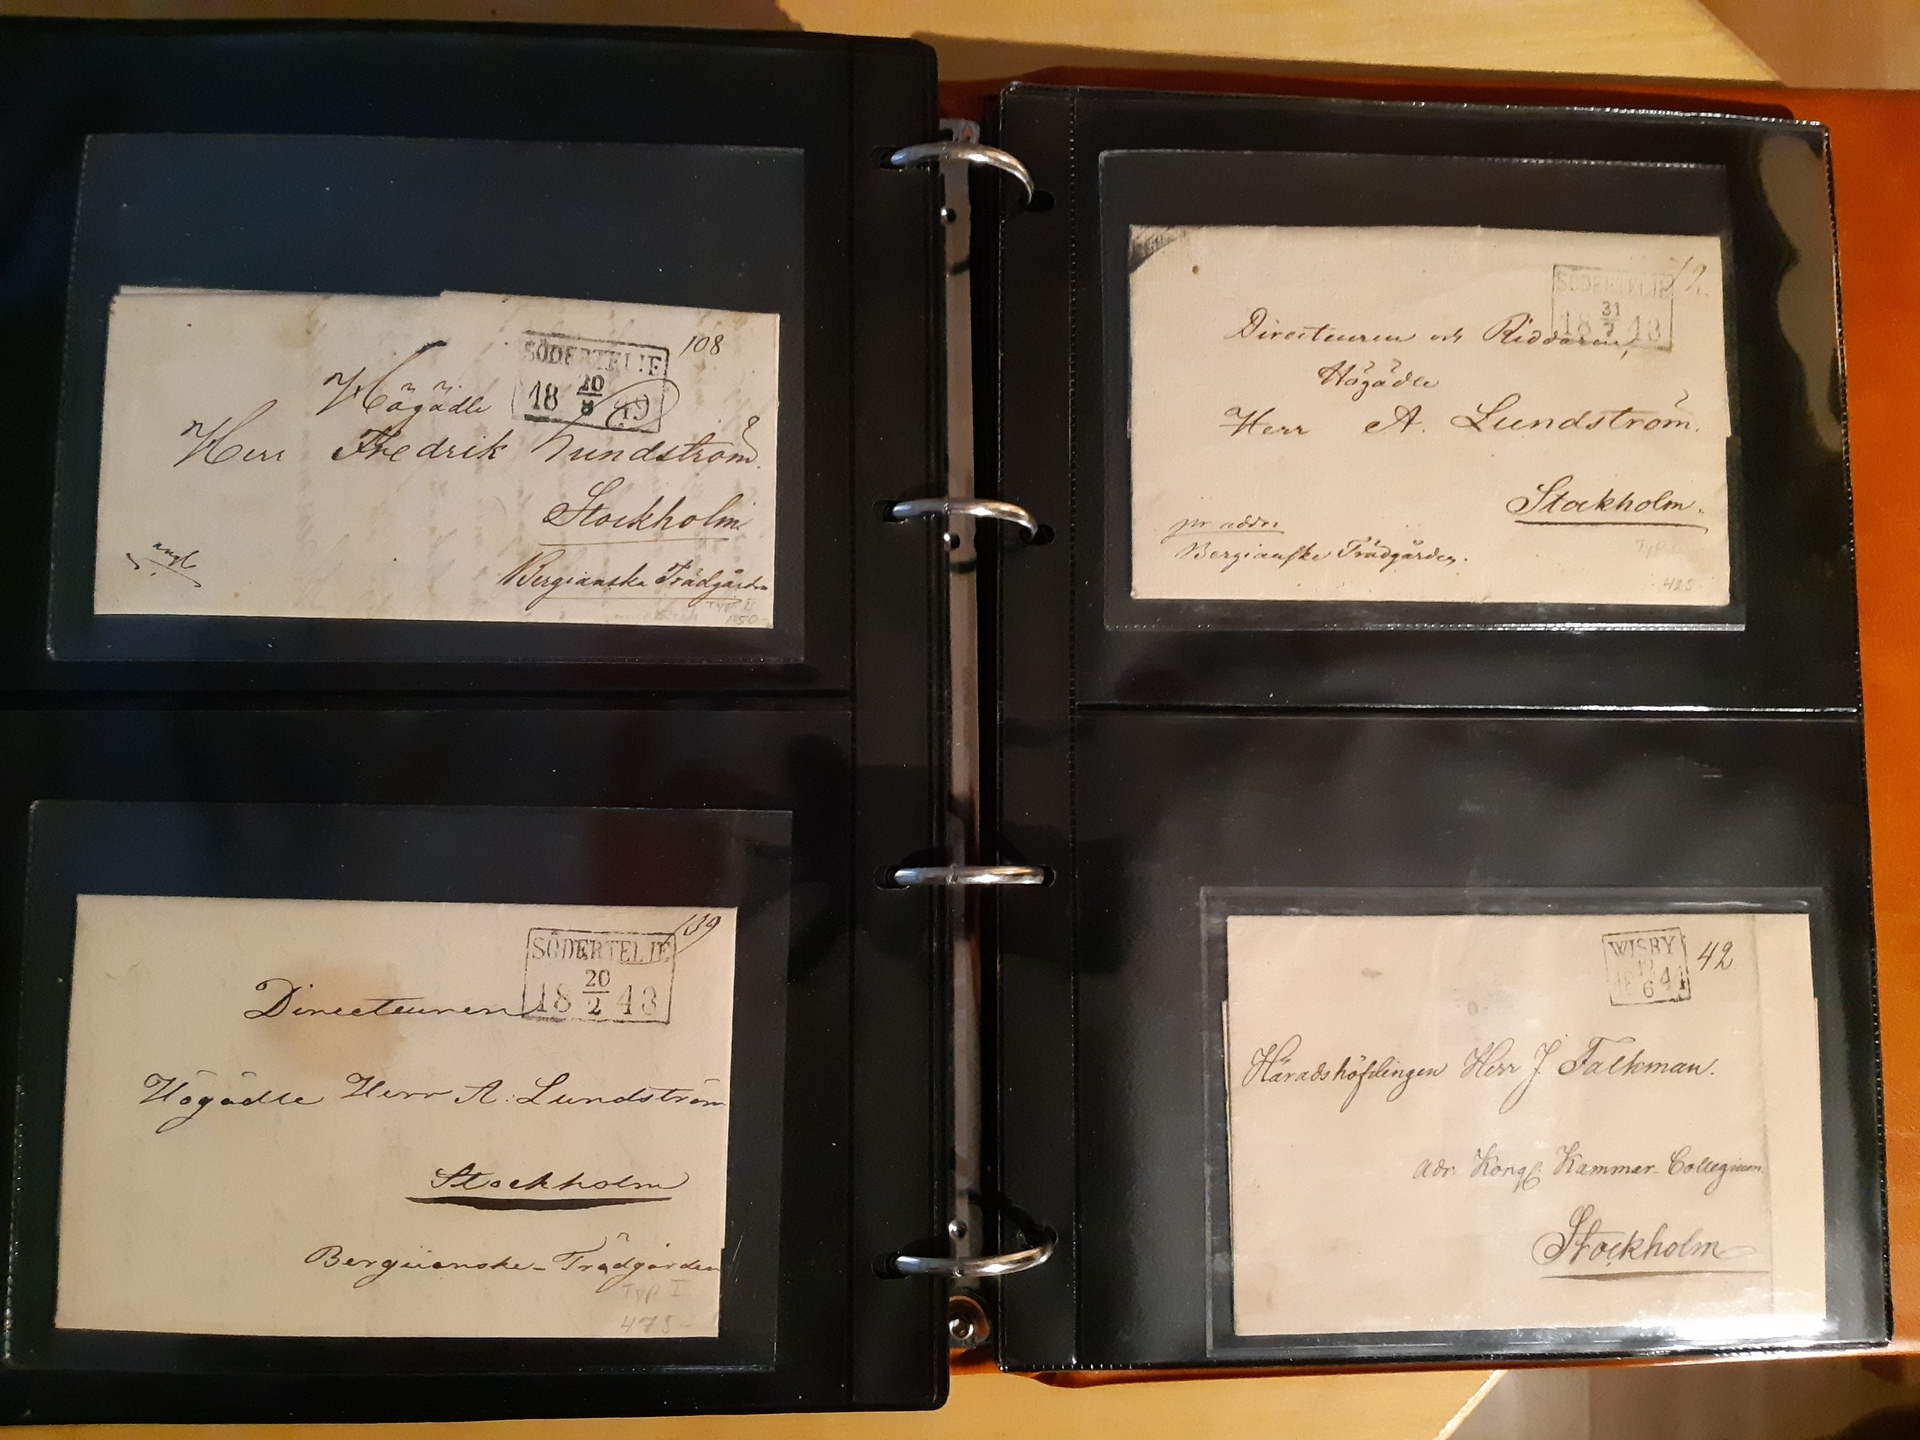 108
SÖDERTELJE
18 20/8 49
Högädle
Herr Fredrik Lundström.
Stockholm
Bergianska Trädgården
TYP I
139
SÖDERTELJE
18 20/2 43
Directeuren
Högädle Herr A. Lundström
Stockholm
Bergianske-Trädgården
TYP I
475-
SÖDERTELJE
18 31/7 43
Directeuren och Riddaren,
Högädle
Herr A. Lundström.
Stockholm.
pr addr:
Bergianske Trädgården.
TYP
425
WISBY
42
6 41
Häradshöfdingen Herr J Falkman.
adr. Kongl. Kammar-Collegium
Stockholm